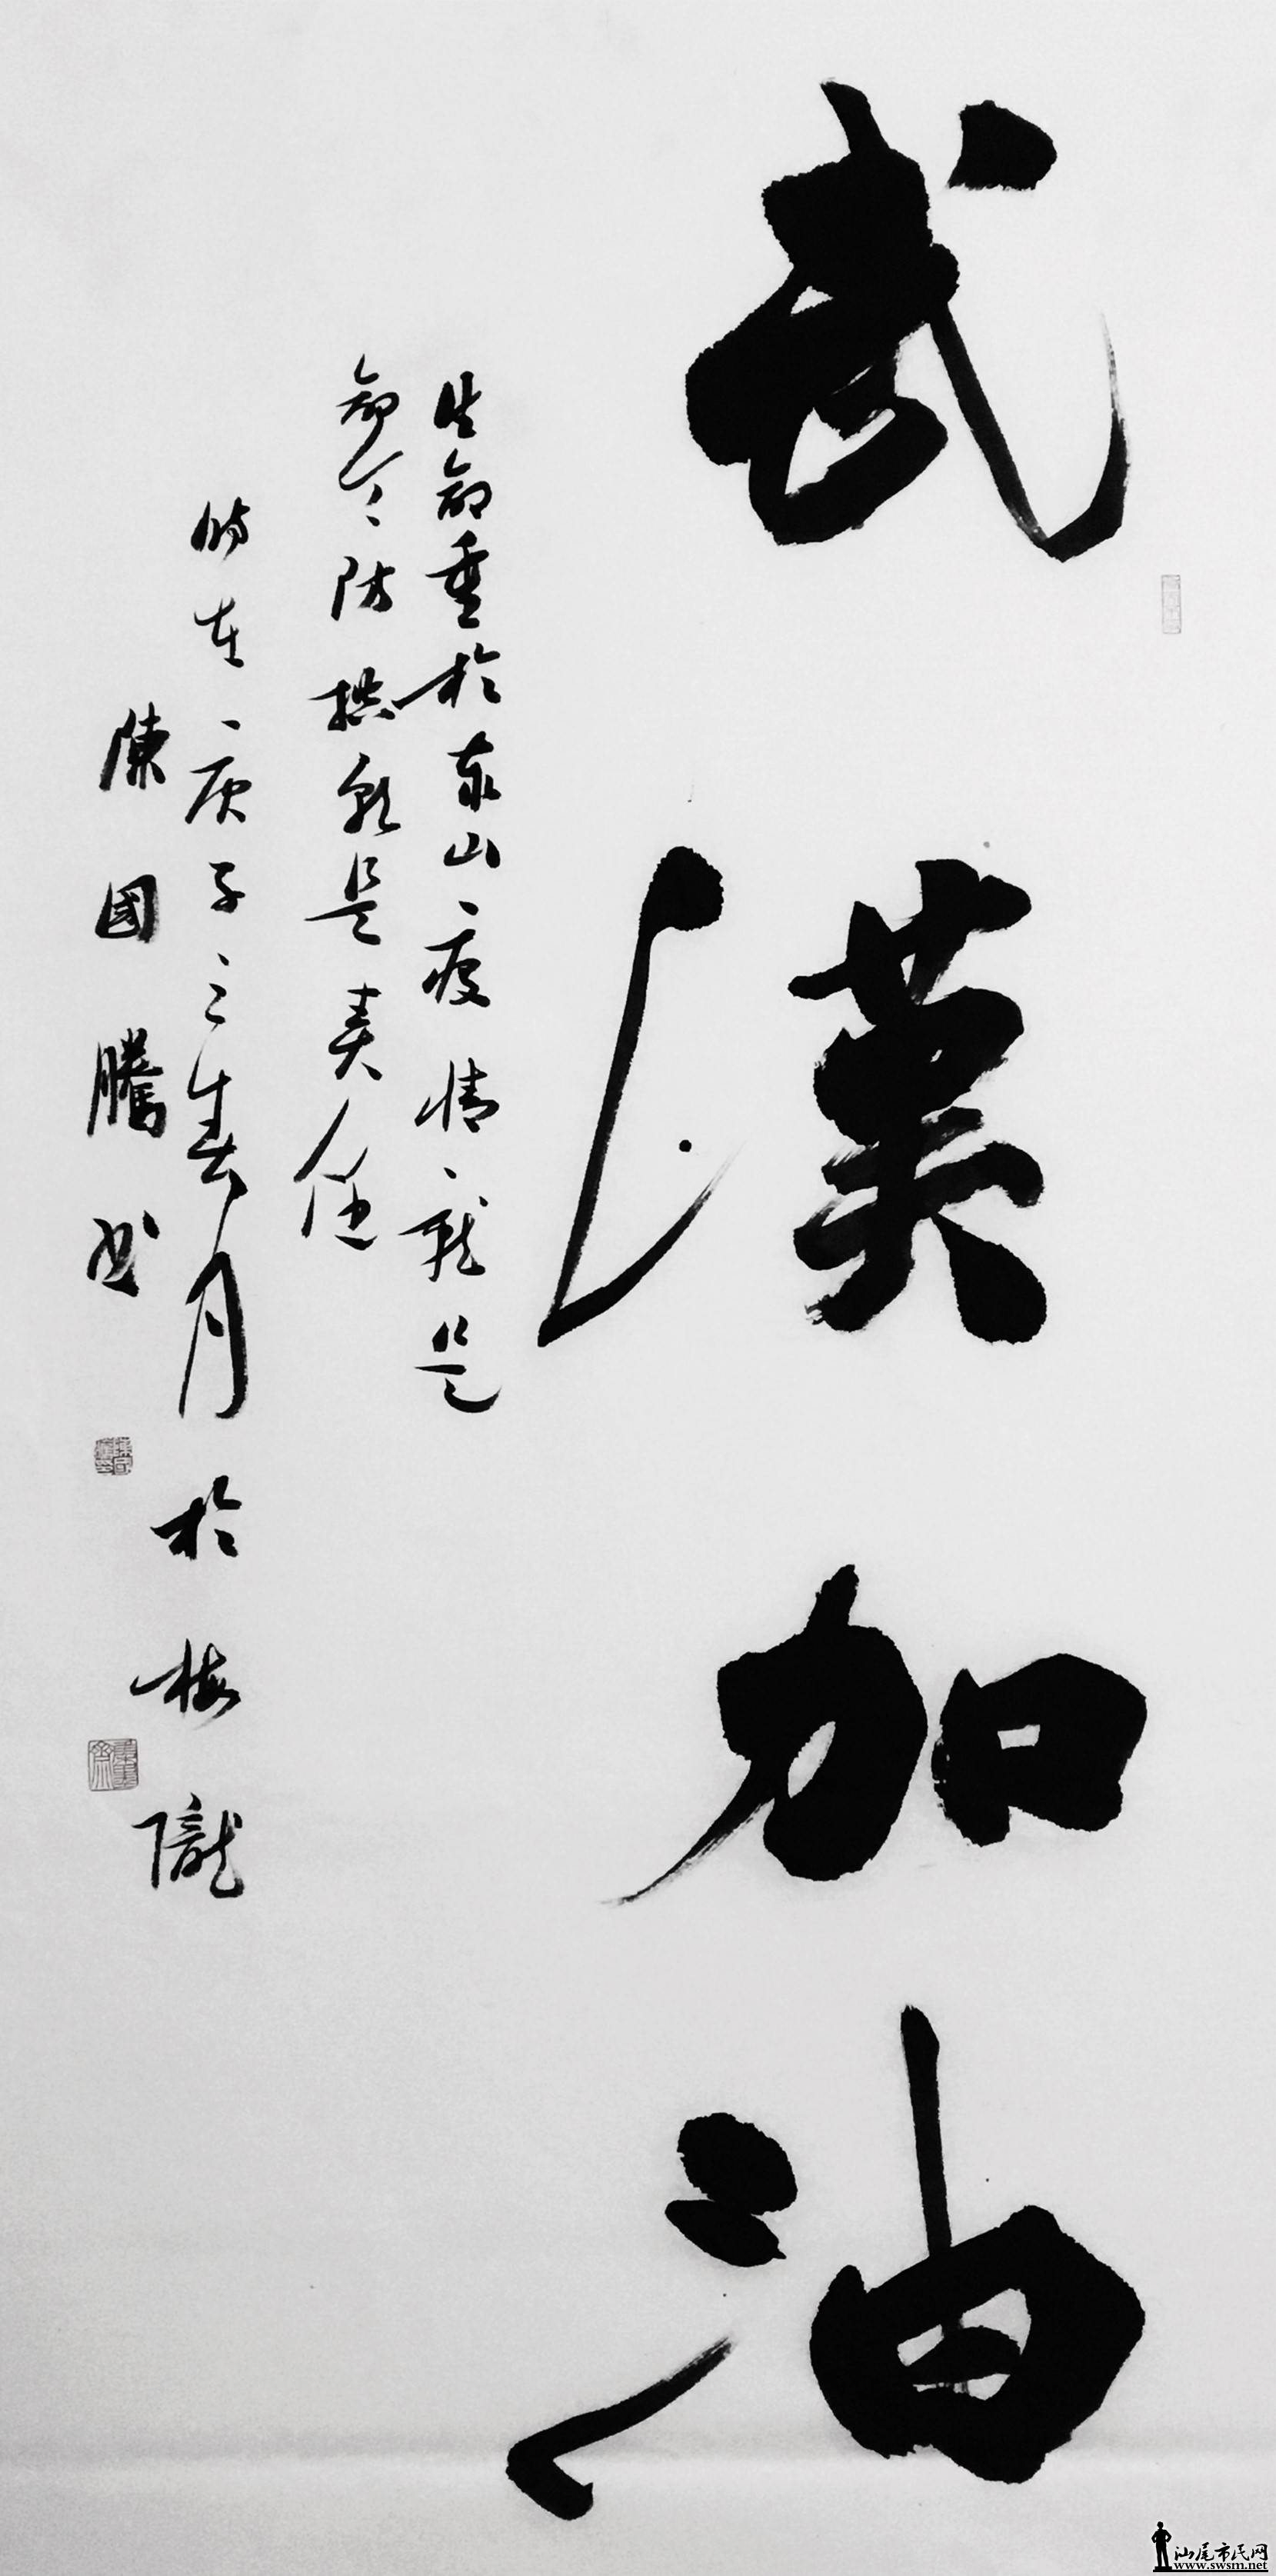 武漢加油
生命重於泰山疫情就是
命令防控就是責任
時在庚子之春月於梅隴
陳國騰書
汕尾市民网
www.swsm.net